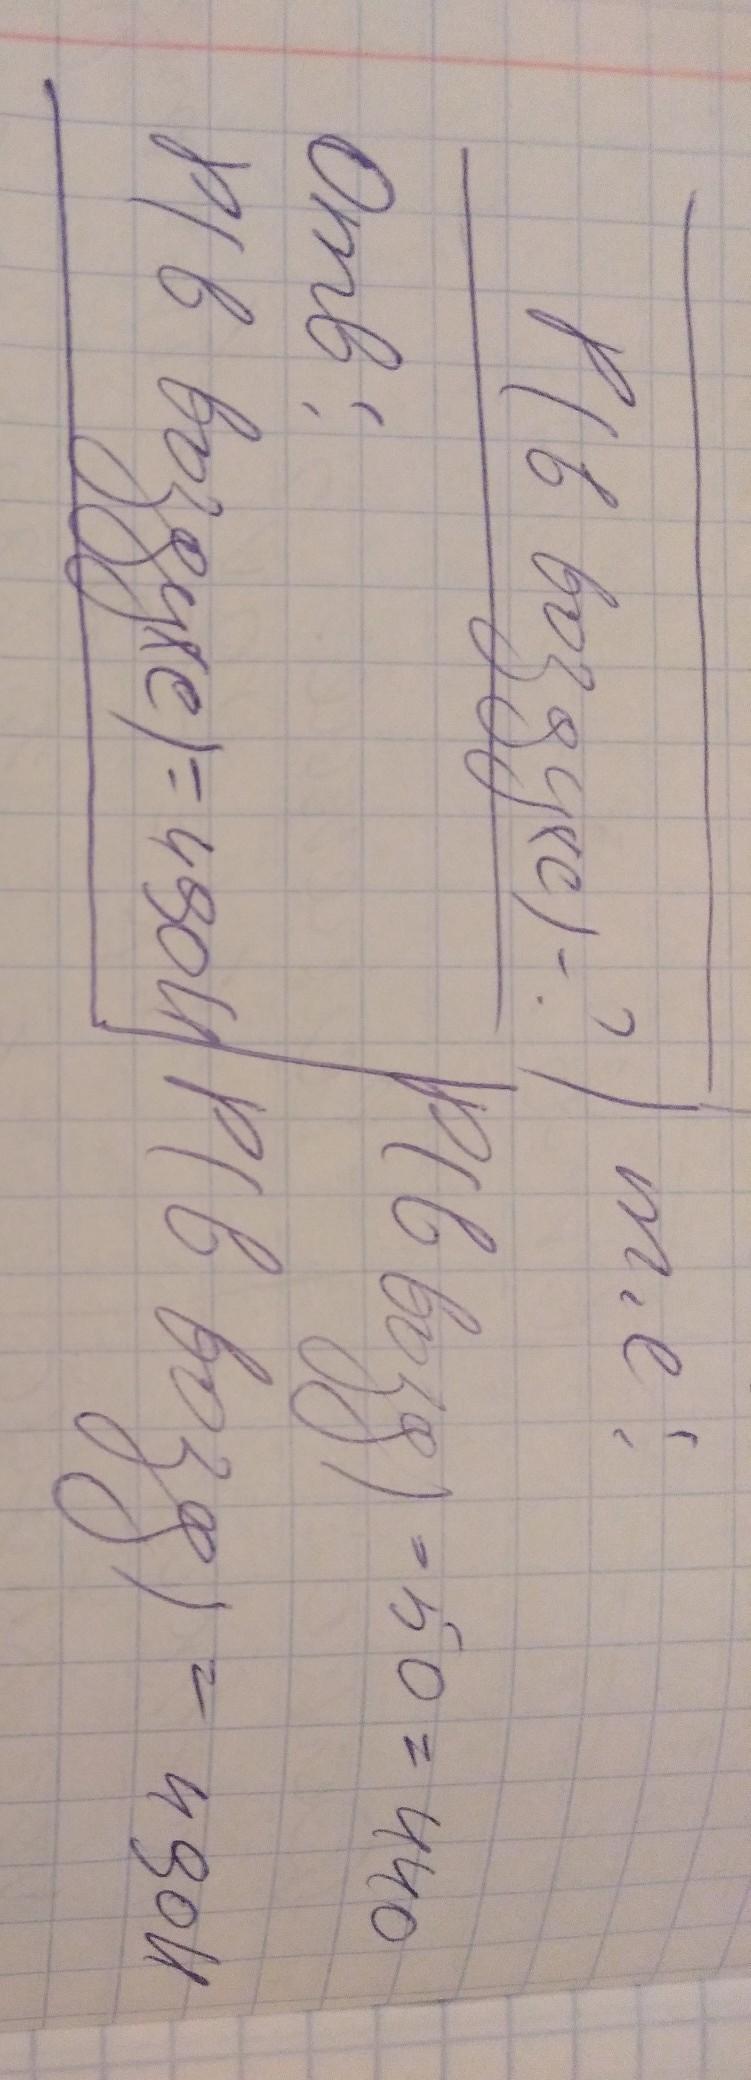 P(в воздухе) - ? т.е:
P(в возд) - 50 = 440
Отв:
P(в воздухе) = 490Н P(в возд) = 490Н